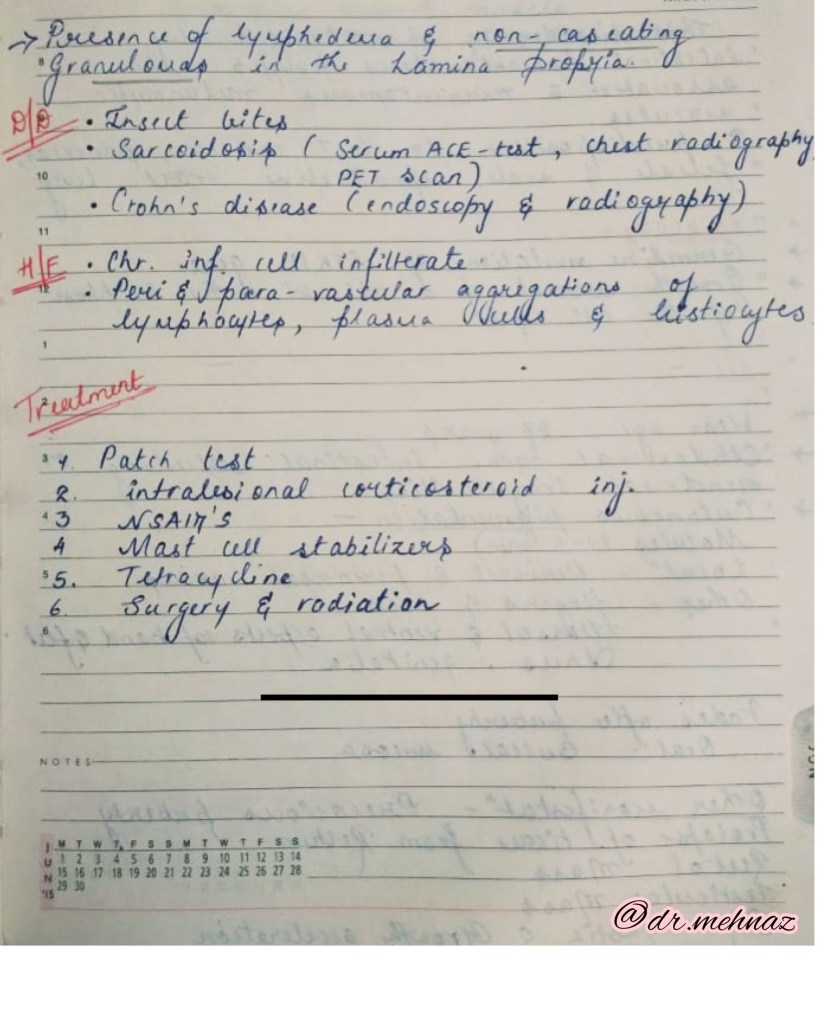 → Presence of lymphedema & non-caseating
Granulomas in the Lamina propria.
D/D • Insect bites
• Sarcoidosis ( Serum ACE-test, chest radiography
10 PET scan)
• Crohn's disease (endoscopy & radiography)
11
H/E • Chr. inf. cell infilterate.
12 • Peri & para-vascular aggregations of
lymphocytes, plasma cells & histiocytes
1
2
Treatment
3 1. Patch test
2. intralesional corticosteroid inj.
4 3 NSAID's
4 Mast cell stabilizers
5 5. Tetracycline
6. Surgery & radiation
6
NOTES
J U N '15
M T W T F S S M T W T F S S
1 2 3 4 5 6 7 8 9 10 11 12 13 14
15 16 17 18 19 20 21 22 23 24 25 26 27 28
29 30
@dr.mehnaz